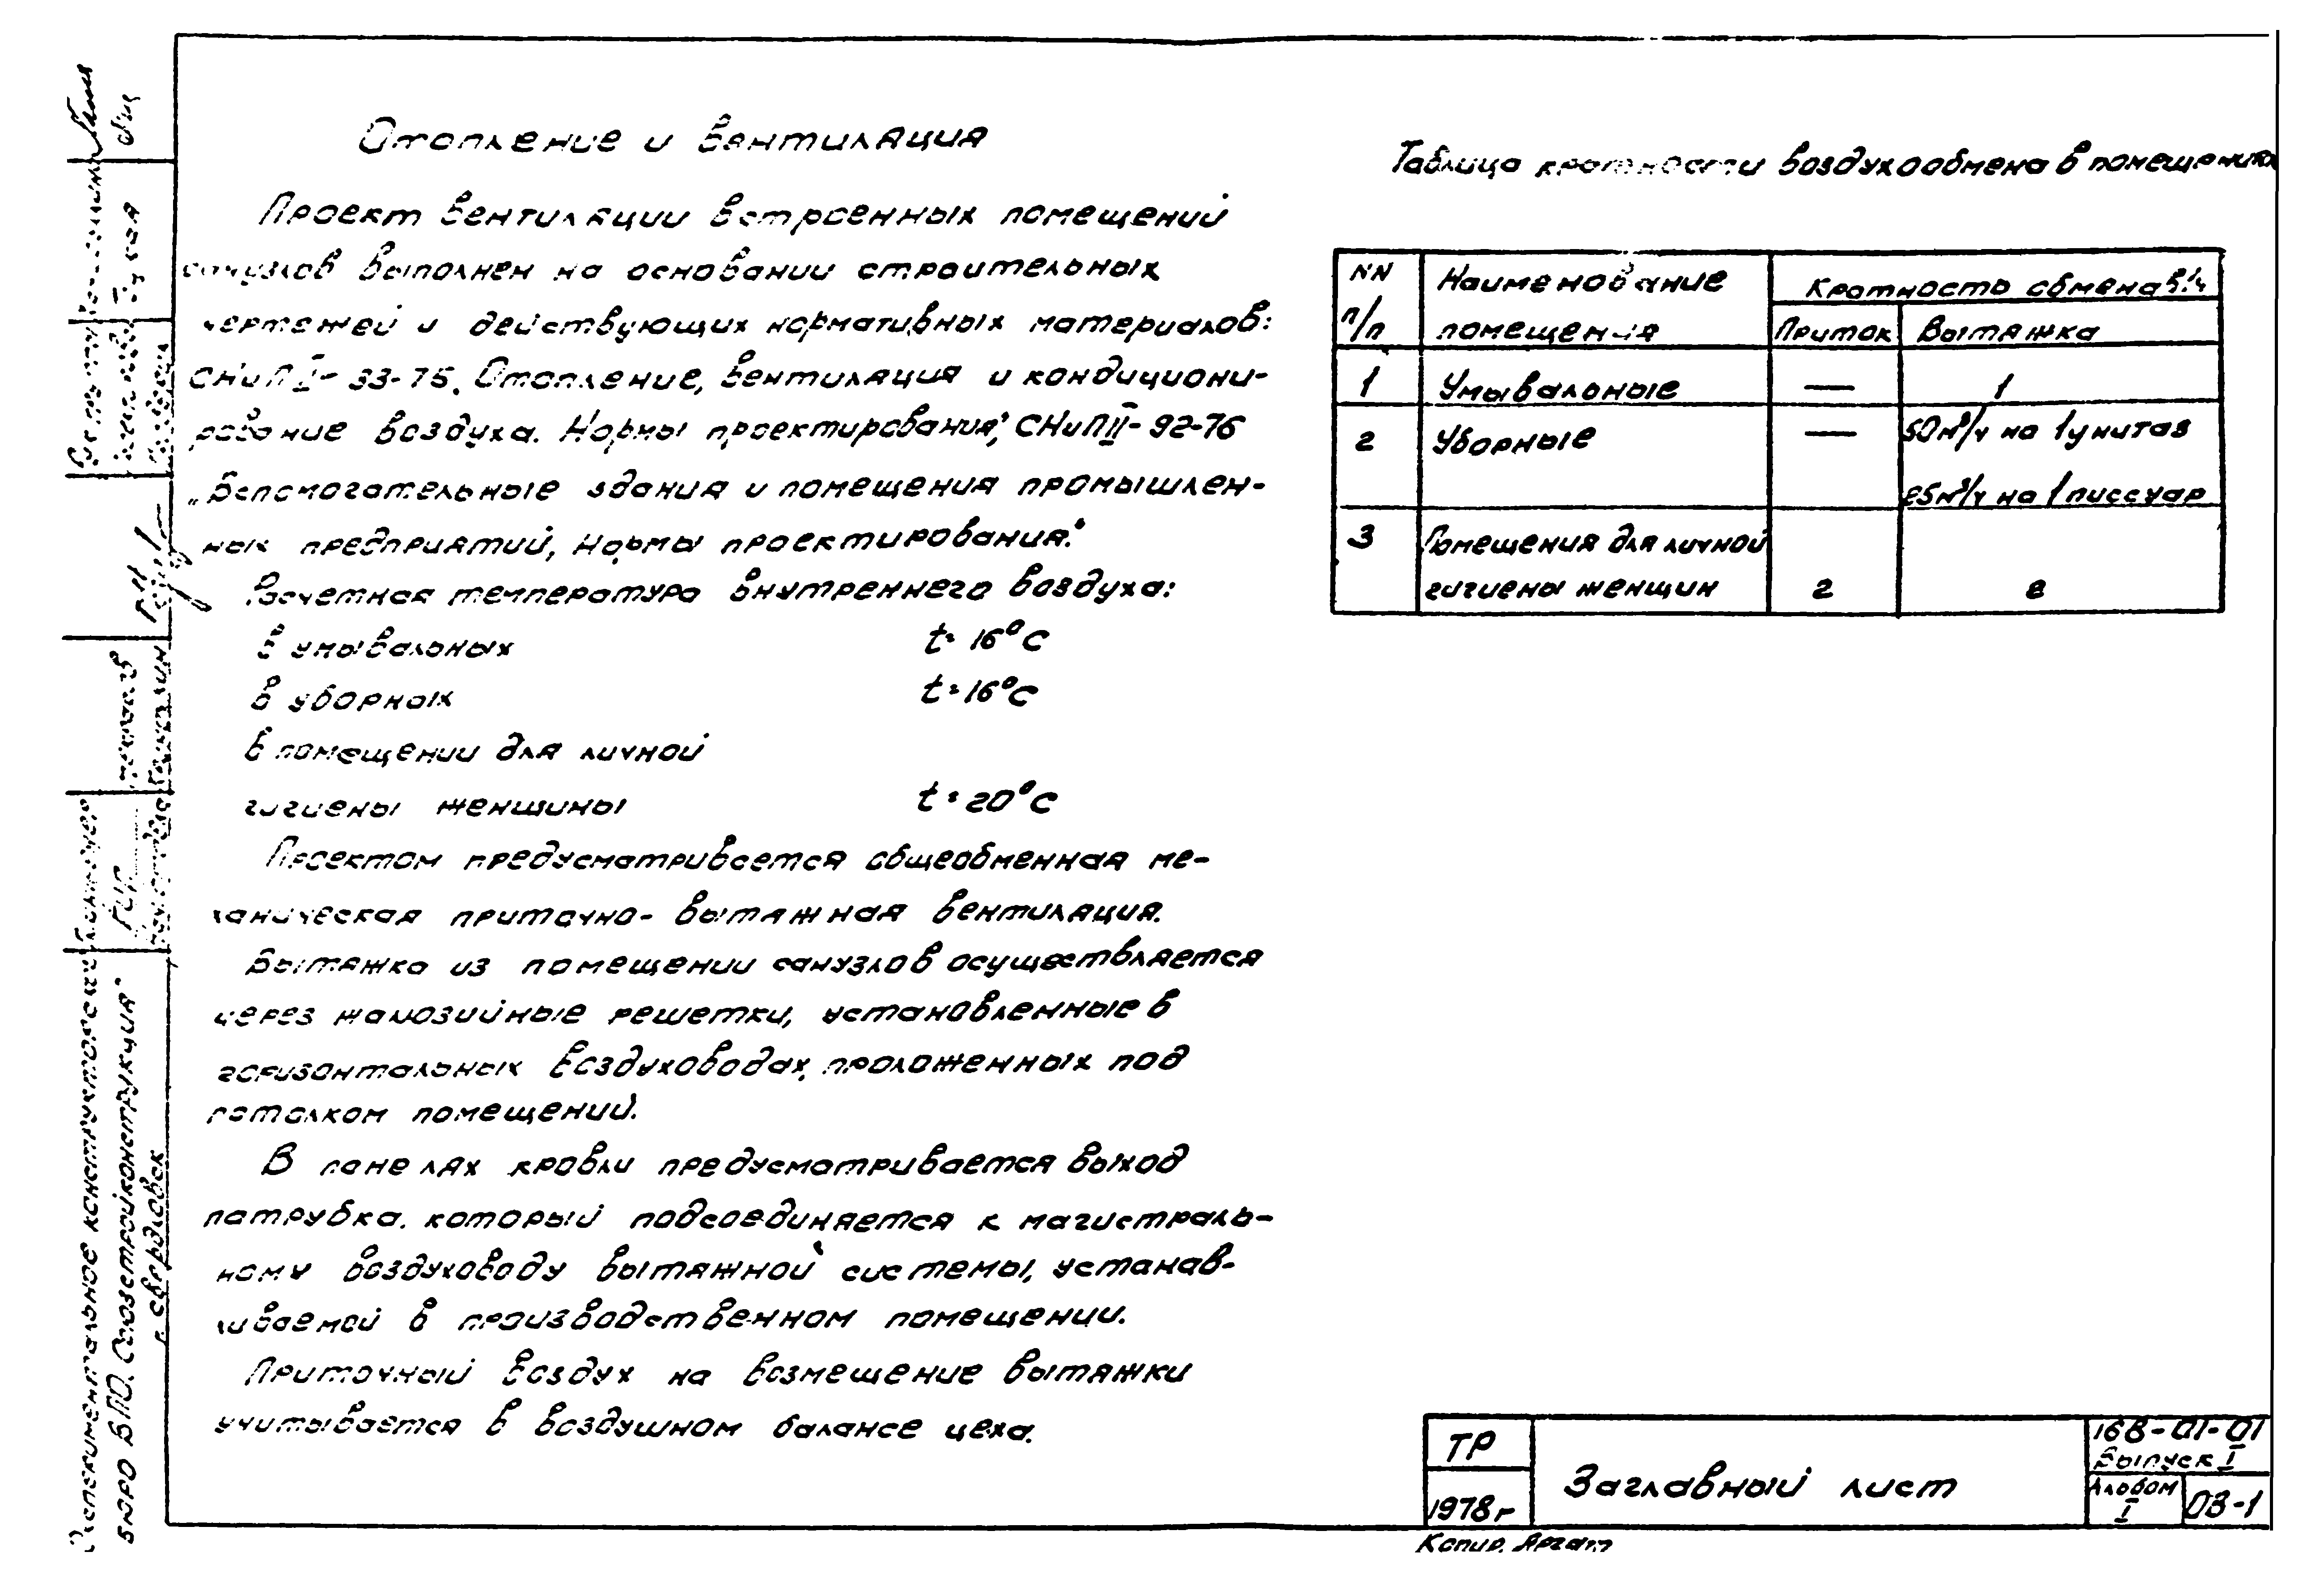 Отопление и вентиляция
Проект вентиляции встроенных помещений
санузлов выполнен на основании строительных
чертежей и действующих нормативных материалов:
СНиП II-33-75, Отопление, вентиляция и кондициони-
рование воздуха. Нормы проектирования", СНиП II-92-76
„Вспомогательные здания и помещения промышлен-
ных предприятий, Нормы проектирования".
Расчетная температура внутреннего воздуха:
в умывальных t=16°C
в уборных t=16°C
в помещении для личной
гигиены женщины t=20°C
Проектом предусматривается общеобменная ме-
ханическая приточно-вытяжная вентиляция.
Вытяжка из помещении санузлов осуществляется
через жалюзийные решетки, установленные в
горизонтальных воздуховодах, проложенных под
потолком помещений.
В панелях кровли предусматривается выход
патрубка. который подсоединяется к магистраль-
ному воздуховоду вытяжной системы, устанав-
ливаемой в производственном помещении.
Приточный воздух на возмещение вытяжки
учитывается в воздушном балансе цеха.
Таблица кратности воздухообмена в помещениях
NN п/п
Наименование помещения
Кратность обмена в 1ч
Приток Вытяжка
1 Умывальные — 1
2 Уборные — 50м³/ч на 1 унитаз
25м³/ч на 1 писсуар
3 Помещения для личной
гигиены женщин 2 2
ТР
1978г
Заглавный лист
168-01-01
Выпуск I
Альбом I
ОВ-1
Копир. Аргат
Экспериментальное конструкторское
бюро ВПО „Союзстройконструкция"
г. Свердловск